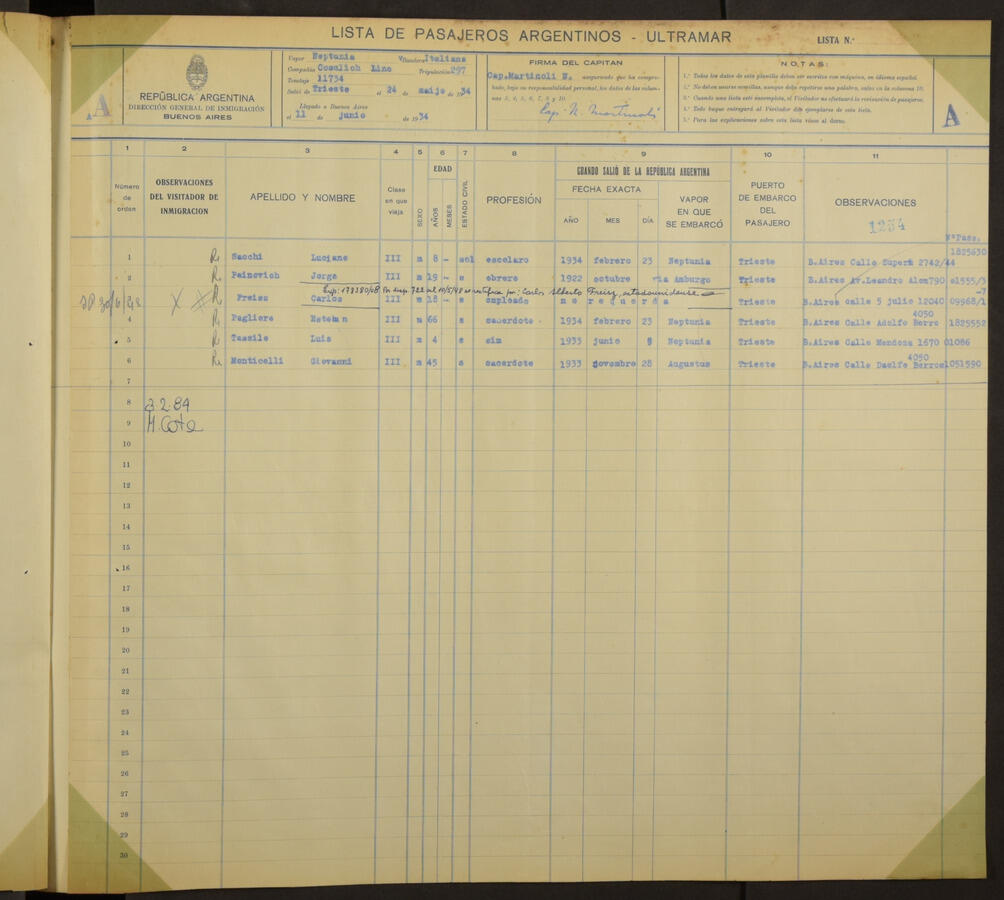 LISTA DE PASAJEROS ARGENTINOS - ULTRAMAR
LISTA N.º
REPÚBLICA ARGENTINA
DIRECCIÓN GENERAL DE INMIGRACIÓN
BUENOS AIRES
A
Vapor Neptunia Bandera Italiana
Compañía Cosulich Line Tripulación 297
Tonelaje 11734
Salió de Trieste el 24 de maijo de 1934
Llegado a Buenos Aires
el 11 de junio de 1934
FIRMA DEL CAPITAN
Cap. Martinoli N. asegurando que ha comprobado, bajo su responsabilidad personal, los datos de las columnas 3, 4, 5, 6, 7, 8 y 10.
Cap. N. Martinoli
NOTAS:
1.ª Todos los datos de esta planilla deben ser escritos con máquina, en idioma español.
2.ª No deben usarse comillas, aunque deba repetirse una palabra, salvo en la columna 10.
3.ª Cuando una lista esté incompleta, el Visitador no efectuará la revisación de pasajeros.
4.ª Todo buque entregará al Visitador dos ejemplares de esta lista.
5.ª Para las explicaciones sobre esta lista véase al dorso.
A
1 2 3 4 5 6 7 8 9 10 11
Número de orden
OBSERVACIONES DEL VISITADOR DE INMIGRACION
APELLIDO Y NOMBRE
Clase en que viaja
SEXO
EDAD
AÑOS
MESES
ESTADO CIVIL
PROFESIÓN
CUANDO SALIÓ DE LA REPÚBLICA ARGENTINA
FECHA EXACTA
AÑO MES DÍA
VAPOR EN QUE SE EMBARCÓ
PUERTO DE EMBARCO DEL PASAJERO
OBSERVACIONES
1254
NºPass.
1825630
1 Sacchi Luciano III m 8 - sol escolaro 1934 febrero 23 Neptunia Trieste B.Aires Calle Superi 2742/44
2 Jorge III m 19 - s obrero 1922 octubre Amburgo Trieste B.Aires Av.Leandro Alem790
3 Preisz Carlos III m 18 - s empleado no reguerda Trieste B.Aires calle 5 julio 12040 09968/1
4050
4 Pagliere Esteban III m 66 s sacerdote 1934 febrero 23 Neptunia Trieste B.Aires Calle Adolfo Berro 1825552
5 Tassile Luis III m 4 s sin 1933 junio Neptunia Trieste B.Aires Calle Mendoza 1670 01086
4050
6 Monticelli Giovanni III m 45 s sacerdote 1933 novembre 28 Augustus Trieste B.Aires Calle Daolfo Berros 1051590
7
8 2.2.84
9
10
11
12
13
14
15
16
17
18
19
20
21
22
23
24
25
26
27
28
29
30